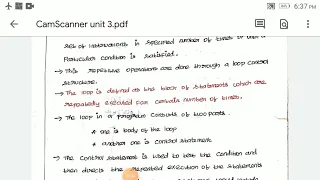 6:37 PM
CamScanner unit 3.pdf
set of instructions in specified number of times or until a
Particular condition is satisfied.
→ This repetitive operations are done through a loop control
structure.
→ The loop is defined as the block of statements which are
repeatedly executed for certain number of times.
→ The loop in a program consists of two parts.
* one is body of the loop
* another one is control statement
→ The control statement is used to test the condition and
then directs the repeated execution of the statements